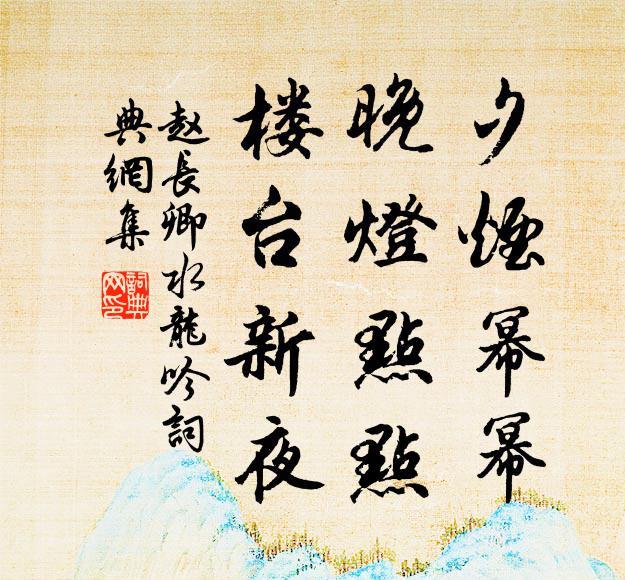 夕煙幂幂
晚燈點點
楼台新夜
赵長卿水龍吟詞
典網集
詞典網印